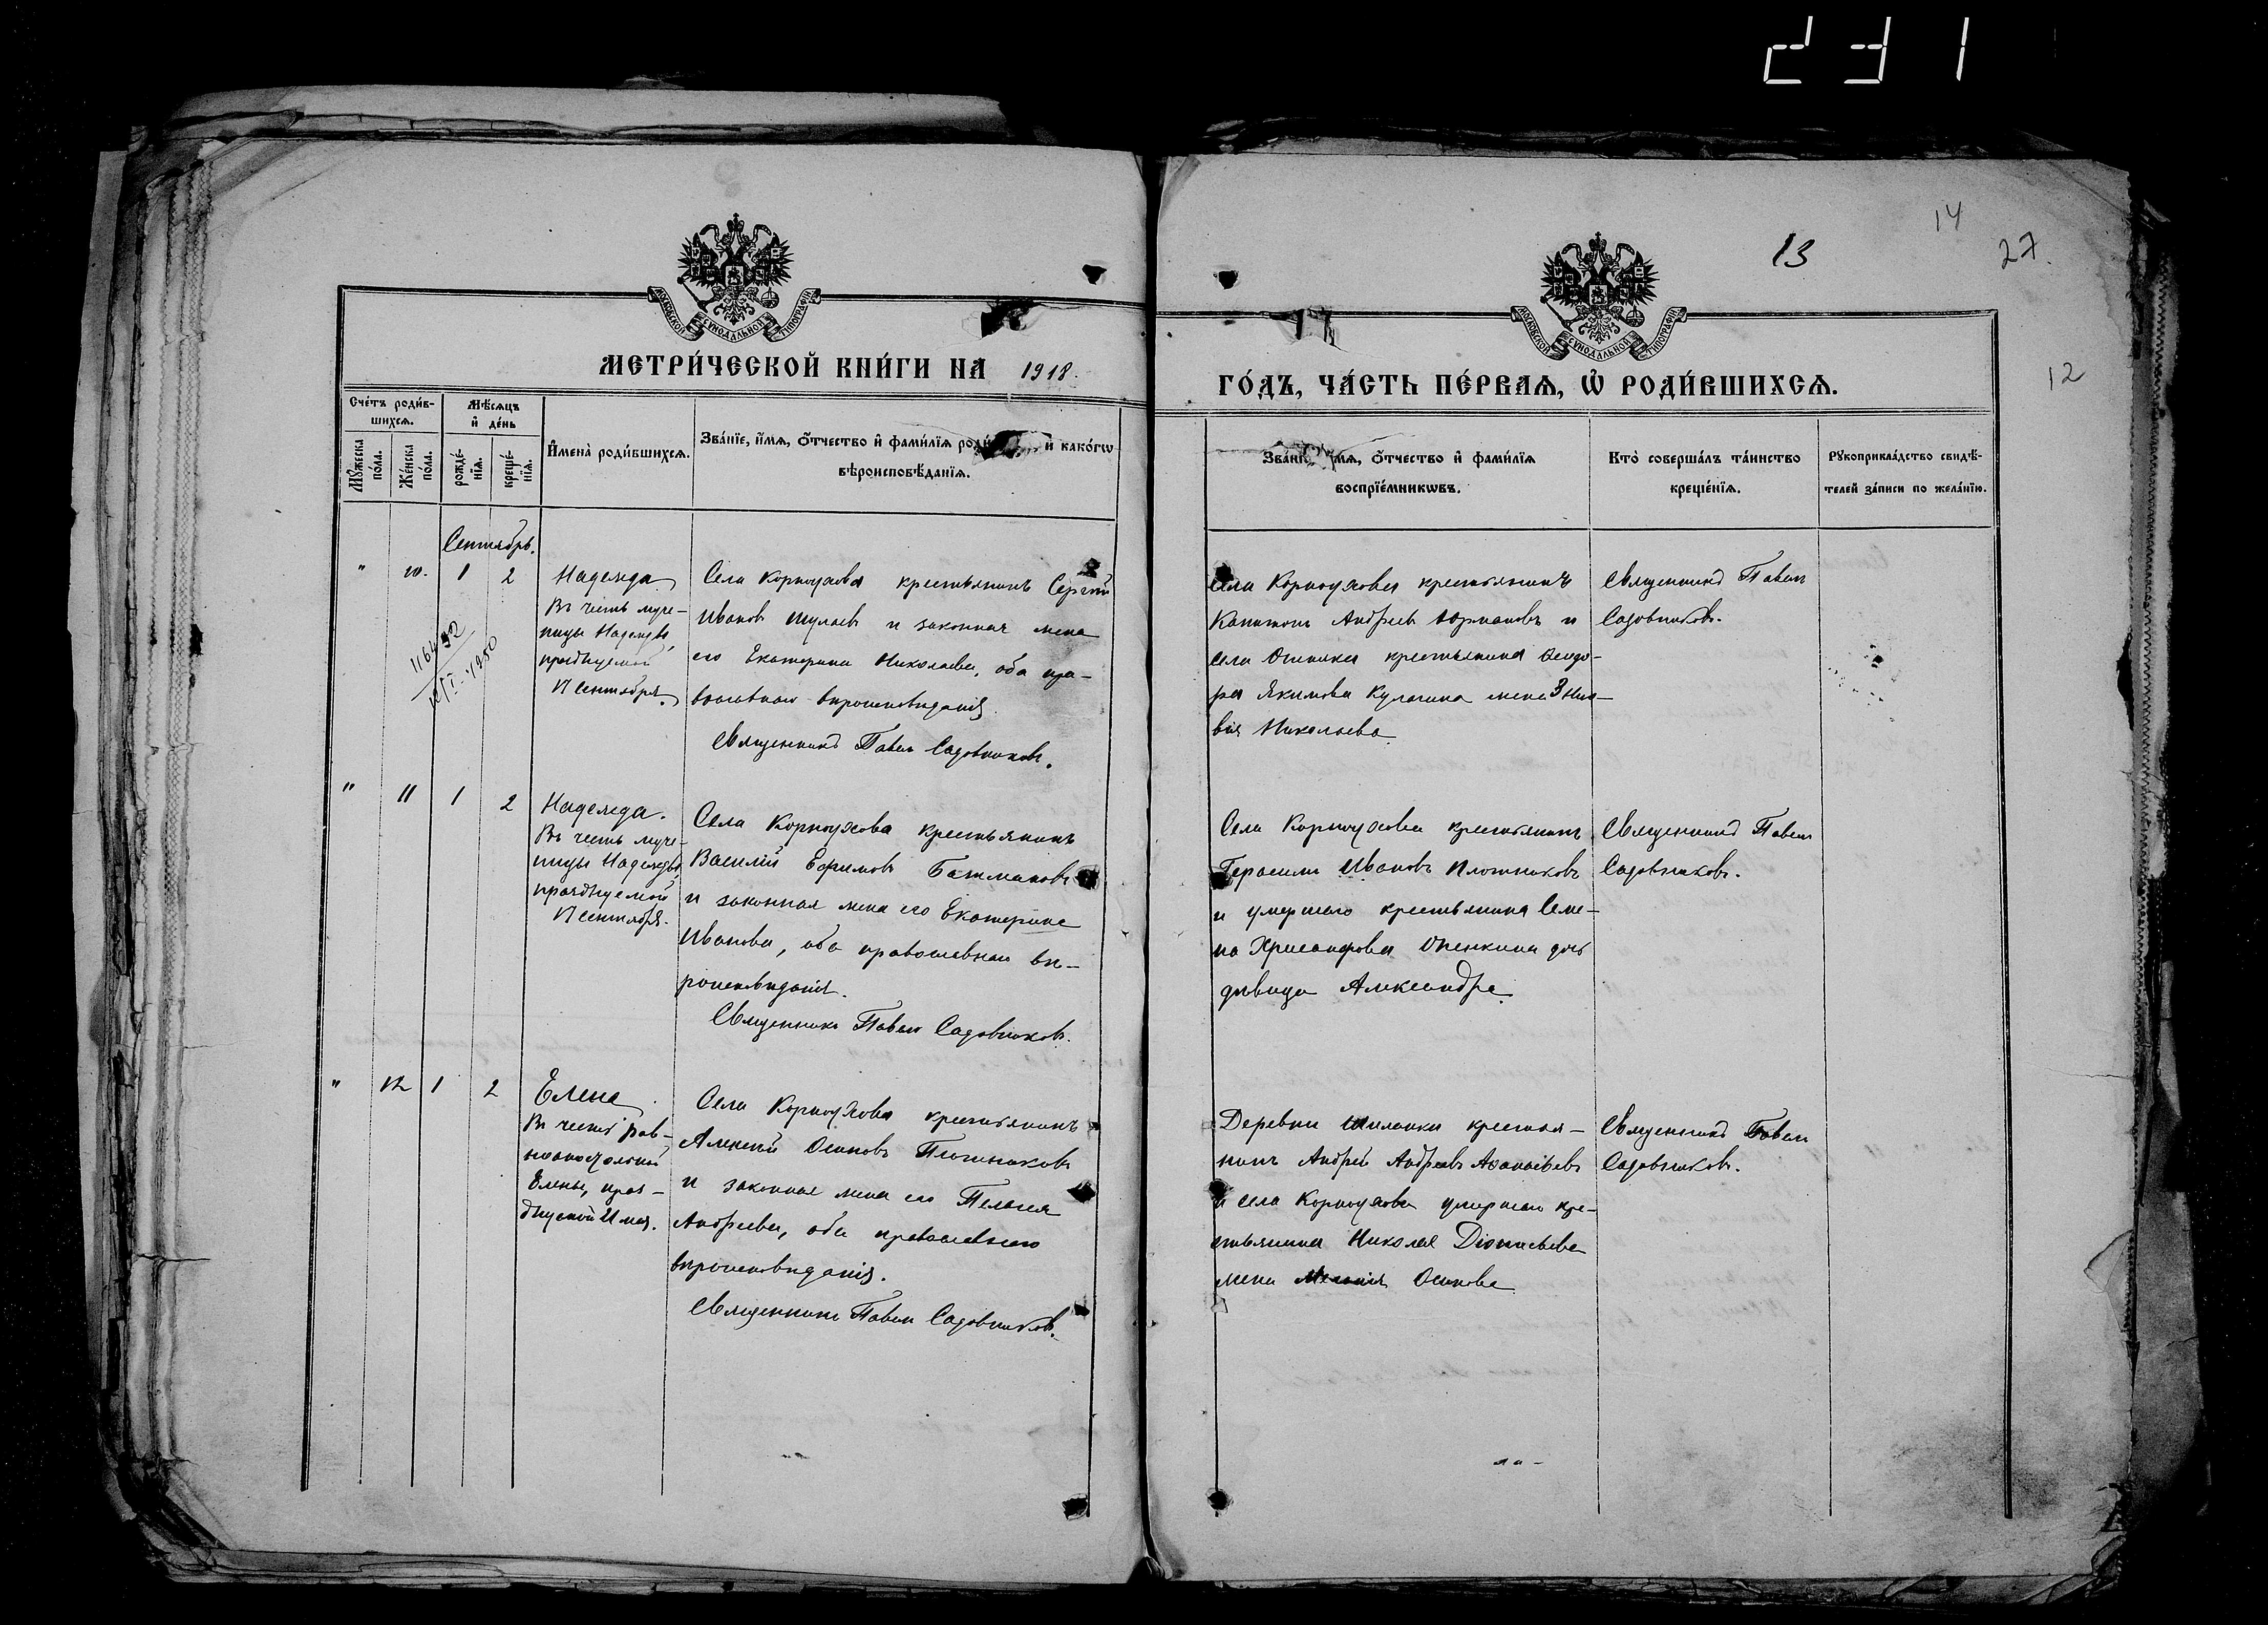 231
14
13
27.
12
МОСКОВСКОЙ СѴНОДАЛЬНОЙ ТИПОГРАФІИ
МОСКОВСКОЙ СѴНОДАЛЬНОЙ ТИПОГРАФІИ
МЕТРИ́ЧЕСКОЙ КНИ́ГИ НА 1918.
ГО́ДЪ, ЧА́СТЬ ПЕ́РВАѦ, Ѡ РОДИ́ВШИХСѦ.
Сче́тъ роди́в-
шихсѧ.
Мѣ́сѧцъ
и҆ де́нь
Мꙋ́жеска
по́ла.
Же́нска
по́ла.
рожде́-
нїѧ.
креще́-
нїѧ.
И҆мена̀ роди́вшихсѧ.
Зва́нїе, и҆́мѧ, ѻ҆́тчество и҆ фами́лїѧ роди и҆ како́гѡ
вѣроисповѣ́данїѧ.
Зва́нїе мѧ, ѻ҆́тчество и҆ фами́лїѧ
воспрїе́мникѡвъ.
Кто̀ соверша́лъ та́инство
креще́нїѧ.
Рꙋкоприкла́дство свидѣ́-
телей за́писи по жела́нїю.
Сентябрь.
" 10. 1 2
Надежда
Въ честь муче-
ницы Надежды,
празднуемой
17 сентября.
116492
10/I-1950
Села Корноухова крестьянинъ Сергѣй
Ивановъ Шулаевъ и законная жена
его Екатерина Николаева, оба пра-
вославнаго вѣроисповѣданія.
Священникъ Павелъ Садовниковъ.
Села Корноухова крестьянинъ
Капитонъ Андреевъ Юрмановъ и
села крестьянина Феодо-
ра Якимова Кулагина жена Зино-
вія Николаева
Священникъ Павелъ
Садовниковъ.
" 11 1 2
Надежда.
Въ честь муче-
ницы Надежды,
празднуемой
17 сентября.
Села Корноухова крестьянинъ
Василій Ефимовъ Башмаковъ
и законная жена его Екатерина
Иванова, оба православнаго вѣ-
роисповѣданія.
Священникъ Павелъ Садовниковъ.
Села Корноухова крестьянинъ
Герасимъ Ивановъ Плотниковъ
и умершаго крестьянина Семе-
на Хрисанфова Опенкина дочь
дѣвица Александра
Священникъ Павелъ
Садовниковъ.
" 12 1 2
Елена
Въ честь рав-
ноапостольной
Елены, праз-
днуемой 21 мая.
Села Корноухова крестьянинъ
Алексѣй Осиповъ Плотниковъ
и законная жена его Пелагея
Андреева, оба православнаго
вѣроисповѣданія.
Священникъ Павелъ Садовниковъ.
Деревни Шиланки крестья-
нинъ Андрей Андреевъ Афанасьевъ
и села Корноухова умершаго кре-
стьянина Николая Діонисьева
жена Осипова
Священникъ Павелъ
Садовниковъ.